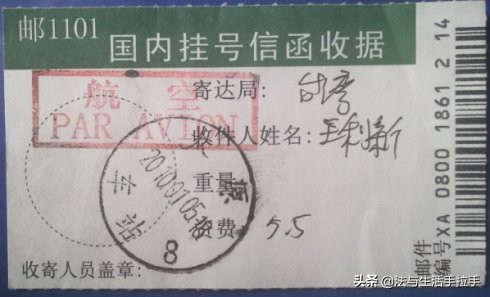 邮1101
国内挂号信函收据
航空
PAR AVION
寄达局: 台湾
收件人姓名: 王利新
重量:
资费: 5.5
收寄人员盖章:
8
邮件
编号 XA 0800 1861 2 14
头条 @法与生活手拉手